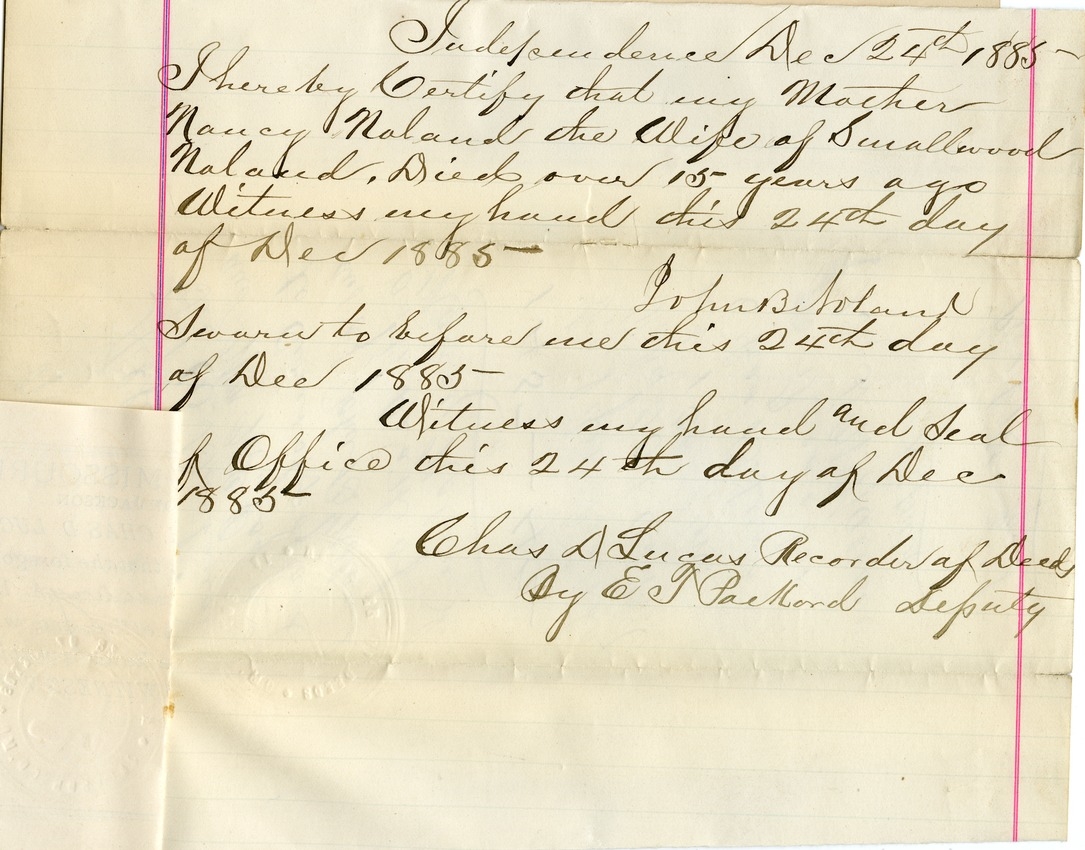 Independence Dec 24th 1885
I hereby Certify that my Mother
Nancy Noland the Wife of Smallwood
Noland. Died over 15 years ago
Witness my hand this 24th day
of Dec 1885
John B. Noland
Sworn to before me this 24th day
of Dec 1885
Witness my hand and Seal
of Office this 24th day of Dec
1885
Chas D Lucas Recorder of Deeds
By E T Packord Deputy